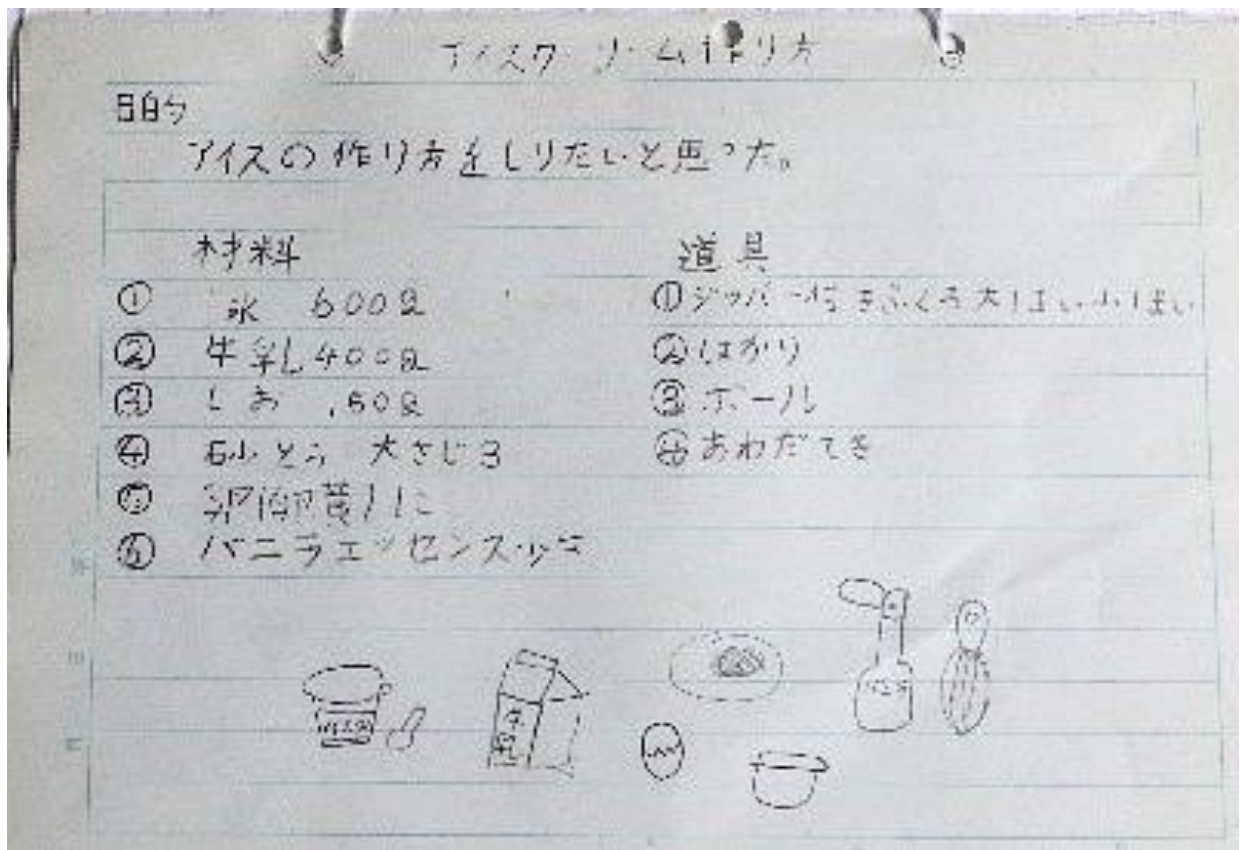 アイスクリーム作り方
目的
アイスの作り方をしりたいと思った。
材料
① 氷 600g
② 牛乳 400g
③ しお 60g
④ 砂とう 大さじ3
⑤ 卵卵黄1こ
⑥ バニラエッセンス少々
道具
①ジッパー付きぶくろ大1まい小1まい
②はかり
③ボール
④あわだてき
牛乳
バニラ